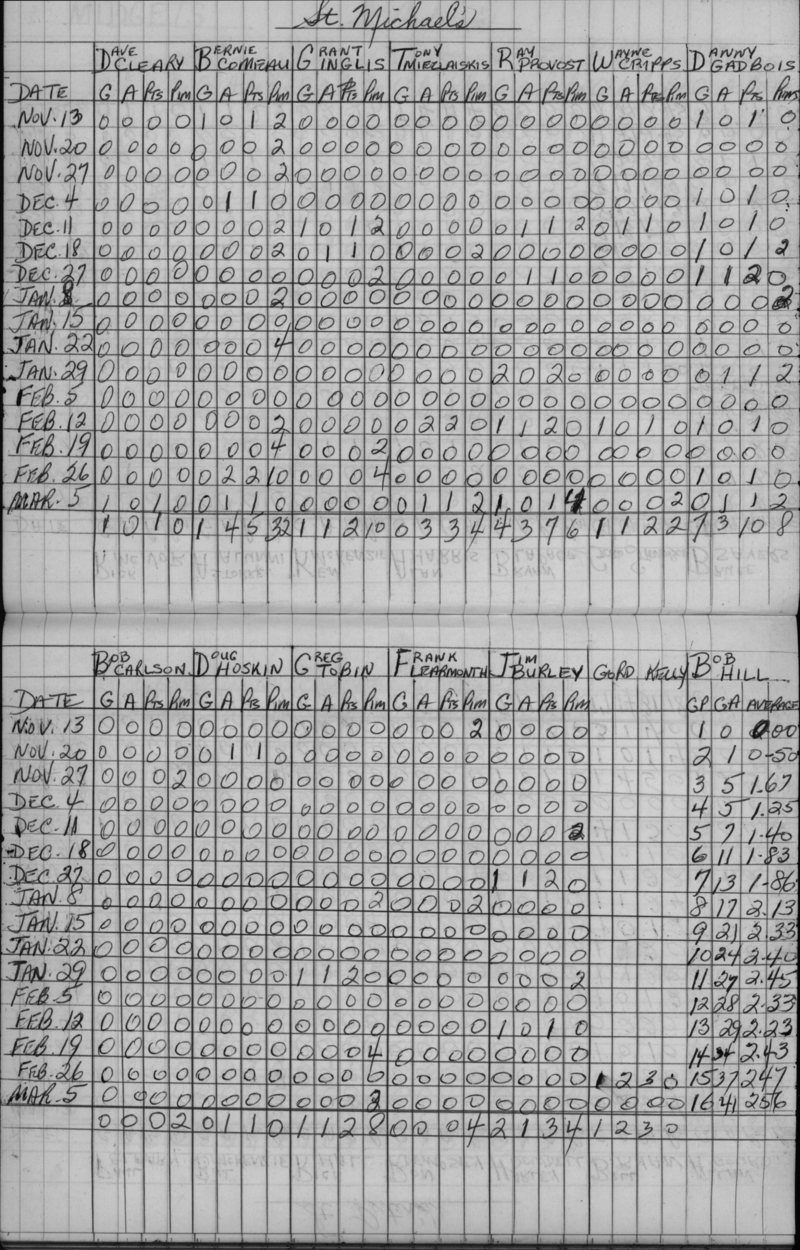 St. Michael's
DAVE CLEARY BERNIE COMEAU GRANT INGLIS TONY MIECLAISKIS RAY PROVOST WAYNE CRIPPS DANNY GADBOIS
DATE G A Pts Pim G A Pts Pim G A Pts Pim G A Pts Pim G A Pts Pim G A Pts Pim G A Pts Pims
NOV. 13 0 0 0 0 1 0 1 2 0 0 0 0 0 0 0 0 0 0 0 0 0 0 0 0 1 0 1 0
NOV. 20 0 0 0 0 0 0 0 2 0 0 0 0 0 0 0 0 0 0 0 0 0 0 0 0 0 0 0 0
NOV. 27 0 0 0 0 0 0 0 2 0 0 0 0 0 0 0 0 0 0 0 0 0 0 0 0 0 0 0 0
DEC. 4 0 0 0 0 0 1 1 0 0 0 0 0 0 0 0 0 0 0 0 0 0 0 0 0 1 0 1 0
DEC. 11 0 0 0 0 0 0 0 2 1 0 1 2 0 0 0 0 0 1 1 2 0 1 1 0 1 0 1 0
DEC. 18 0 0 0 0 0 0 0 2 0 1 1 0 0 0 0 2 0 0 0 0 0 0 0 0 1 0 1 2
DEC. 27 0 0 0 0 0 0 0 0 0 0 0 2 0 0 0 0 0 1 1 0 0 0 0 0 1 1 2 0
JAN. 8 0 0 0 0 0 0 0 2 0 0 0 0 0 0 0 0 0 0 0 0 0 0 0 0 0 0 0 2
JAN. 15 0 0 0 0 0 0 0 0 0 0 0 0 0 0 0 0 0 0 0 0 0 0 0 0 0 0 0 0
JAN. 22 0 0 0 0 0 0 0 4 0 0 0 0 0 0 0 0 0 0 0 0 0 0 0 0 0 0 0 0
JAN. 29 0 0 0 0 0 0 0 0 0 0 0 0 0 0 0 0 2 0 2 0 0 0 0 0 0 1 1 2
FEB. 5 0 0 0 0 0 0 0 0 0 0 0 0 0 0 0 0 0 0 0 0 0 0 0 0 0 0 0 0
FEB. 12 0 0 0 0 0 0 0 2 0 0 0 0 0 2 2 0 1 1 2 0 1 0 1 0 1 0 1 0
FEB. 19 0 0 0 0 0 0 0 4 0 0 0 2 0 0 0 0 0 0 0 0 0 0 0 0 0 0 0 0
FEB. 26 0 0 0 0 0 2 2 10 0 0 0 4 0 0 0 0 0 0 0 0 0 0 0 0 1 0 1 0
MAR. 5 1 0 1 0 0 1 1 0 0 0 0 0 0 1 1 2 1 0 1 4 0 0 0 2 0 1 1 2
1 0 1 0 1 4 5 32 1 1 2 10 0 3 3 4 4 3 7 6 1 1 2 2 7 3 10 8
BOB CARLSON DOUG HOSKIN GREG TOBIN FRANK LEARMONTH JIM BURLEY GORD KELLY BOB HILL
DATE G A Pts Pim G A Pts Pim G A Pts Pim G A Pts Pim G A Pts Pim GP GA AVERAGE
NOV. 13 0 0 0 0 0 0 0 0 0 0 0 0 0 0 0 2 0 0 0 0 1 0 0.00
NOV. 20 0 0 0 0 0 1 1 0 0 0 0 0 0 0 0 0 0 0 0 0 2 1 0.50
NOV. 27 0 0 0 2 0 0 0 0 0 0 0 0 0 0 0 0 0 0 0 0 3 5 1.67
DEC. 4 0 0 0 0 0 0 0 0 0 0 0 0 0 0 0 0 0 0 0 0 4 5 1.25
DEC. 11 0 0 0 0 0 0 0 0 0 0 0 0 0 0 0 0 0 0 0 2 5 7 1.40
DEC. 18 0 0 0 0 0 0 0 0 0 0 0 0 0 0 0 0 0 0 0 0 6 11 1.83
DEC. 27 0 0 0 0 0 0 0 0 0 0 0 0 0 0 0 0 1 1 2 0 7 13 1.86
JAN. 8 0 0 0 0 0 0 0 0 0 0 0 2 0 0 0 2 0 0 0 0 8 17 2.13
JAN. 15 0 0 0 0 0 0 0 0 0 0 0 0 0 0 0 0 0 0 0 0 9 21 2.33
JAN. 22 0 0 0 0 0 0 0 0 0 0 0 0 0 0 0 0 0 0 0 0 10 24 2.40
JAN. 29 0 0 0 0 0 0 0 0 1 1 2 0 0 0 0 0 0 0 0 2 11 27 2.45
FEB. 5 0 0 0 0 0 0 0 0 0 0 0 0 0 0 0 0 0 0 0 0 12 28 2.33
FEB. 12 0 0 0 0 0 0 0 0 0 0 0 0 0 0 0 0 1 0 1 0 13 29 2.23
FEB. 19 0 0 0 0 0 0 0 0 0 0 0 4 0 0 0 0 0 0 0 0 14 34 2.43
FEB. 26 0 0 0 0 0 0 0 0 0 0 0 0 0 0 0 0 0 0 0 0 1 2 3 0 15 37 2.47
MAR. 5 0 0 0 0 0 0 0 0 0 0 0 2 0 0 0 0 0 0 0 0 0 0 0 0 16 41 2.56
0 0 0 2 0 1 1 0 1 1 2 8 0 0 0 4 2 1 3 4 1 2 3 0